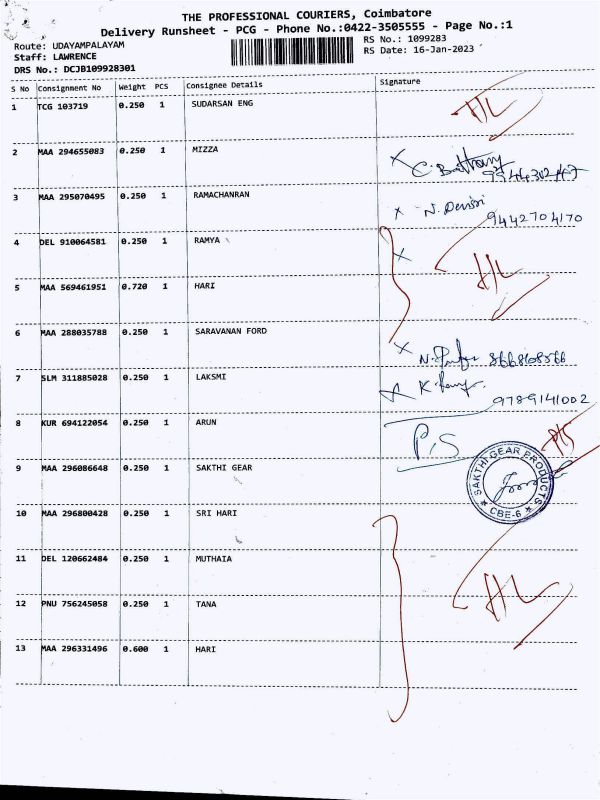 THE PROFESSIONAL COURIERS, Coimbatore
Delivery Runsheet - PCG - Phone No.:0422-3505555 - Page No.:1
Route: UDAYAMPALAYAM
RS No.: 1099283
Staff: LAWRENCE
RS Date: 16-Jan-2023
DRS No.: DCJB109928301
S No Consignment No Weight PCS Consignee Details Signature
1 TCG 103719 0.250 1 SUDARSAN ENG
H/L
2 MAA 294655083 0.250 1 MIZZA
3 MAA 295070495 0.250 1 RAMACHANRAN
9442704170
4 DEL 910064581 0.250 1 RAMYA
H/L
5 MAA 569461951 0.720 1 HARI
6 MAA 288035788 0.250 1 SARAVANAN FORD
7 SLM 311885028 0.250 1 LAKSMI
9789141002
8 KUR 694122054 0.250 1 ARUN
P,S
9 MAA 296086648 0.250 1 SAKTHI GEAR
SAKTHI GEAR PRODUCTS
CBE-6
10 MAA 296800428 0.250 1 SRI HARI
11 DEL 120662484 0.250 1 MUTHAIA
12 PNU 756245058 0.250 1 TANA
H/L
13 MAA 296331496 0.600 1 HARI